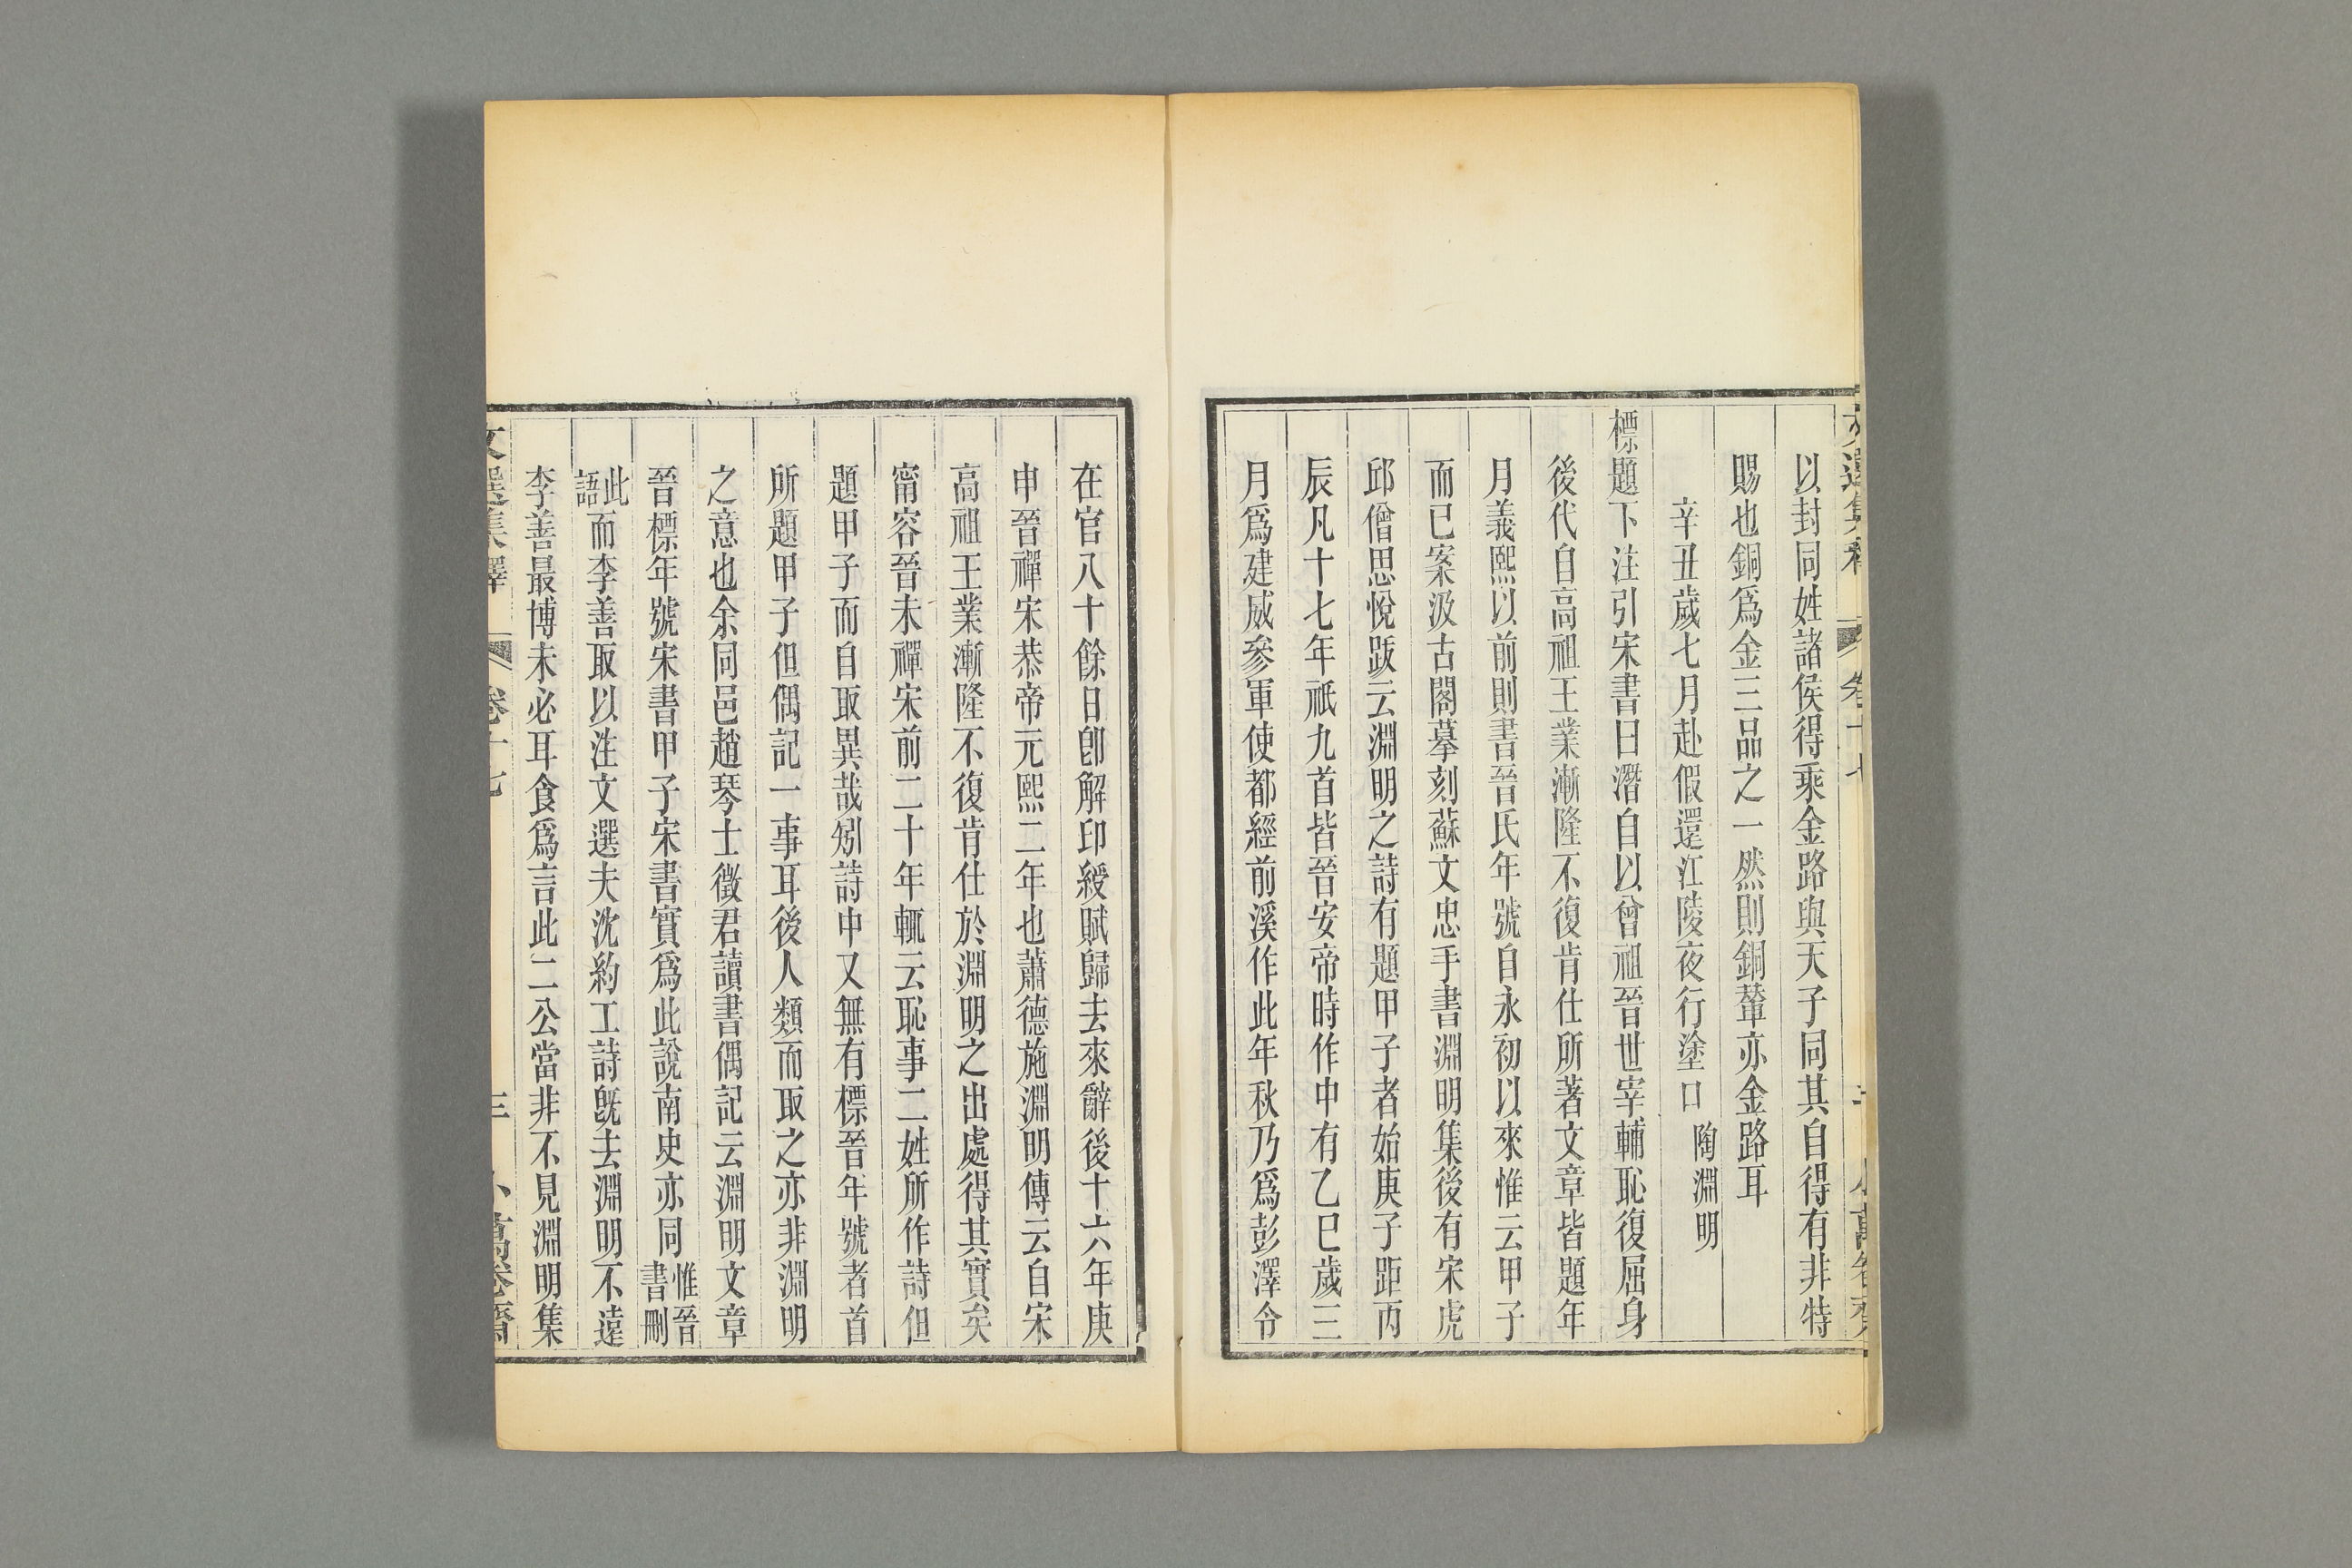 以封同姓諸侯得乘金路與天子同其自得有非特
賜也銅爲金三品之一然則銅輦亦金路耳
辛丑歲七月赴假還江陵夜行塗口　陶淵明
標題下注引宋書曰潛自以曾祖晉世宰輔恥復屈身
後代自高祖王業漸隆不復肯仕所著文章皆題年
月義熙以前則書晉氏年號自永初以來惟云甲子
而已案汲古閣摹刻蘇文忠手書淵明集後有宋虎
邱僧思悅跋云淵明之詩有題甲子者始庚子距丙
辰凡十七年祇九首皆晉安帝時作中有乙巳歲三
月爲建威參軍使都經前溪作此年秋乃爲彭澤令
在官八十餘日卽解印綬賦歸去來辭後十六年庚
申晉禪宋恭帝元熙二年也蕭德施淵明傳云自宋
高祖王業漸隆不復肯仕於淵明之出處得其實矣
甯容晉未禪宋前二十年輒云恥事二姓所作詩但
題甲子而自取異哉矧詩中又無有標晉年號者首
所題甲子但偶記一事耳後人類而取之亦非淵明
之意也余同邑趙琴士徵君讀書偶記云淵明文章
晉標年號宋書甲子宋書實爲此說南史亦同惟晉書刪
此語而李善取以注文選夫沈約工詩旣去淵明不遠
李善最博未必耳食爲言此二公當非不見淵明集
文選集釋　卷十七　三　小萬卷齋